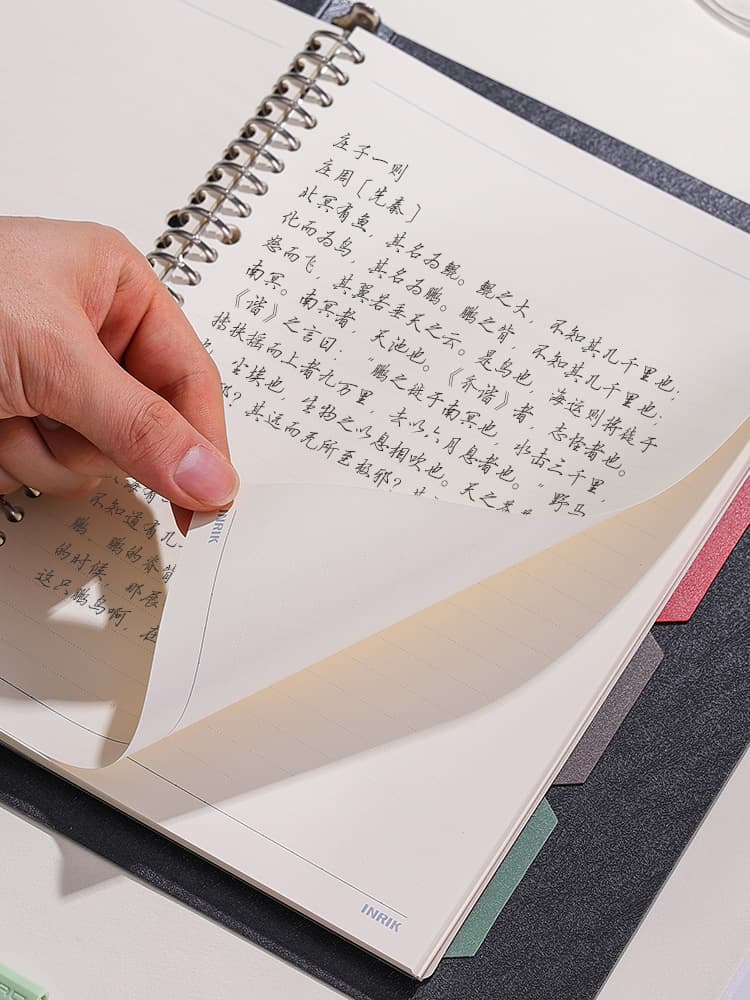 庄子一则
庄周〔先秦〕
北冥有鱼，其名为鲲。鲲之大，不知其几千里也；
化而为鸟，其名为鹏。鹏之背，不知其几千里也；
怒而飞，其翼若垂天之云。是鸟也，海运则将徙于
南冥。南冥者，天池也。《齐谐》者，志怪者也。
《谐》之言曰：“鹏之徙于南冥也，水击三千里，
抟扶摇而上者九万里，去以六月息者也。”野马
也，尘埃也，生物之以息相吹也。天之
邪？其远而无所至极邪？其
海有
不知道有几
鹏，鹏的脊背
的时候，那展
这只鹏鸟啊，在
INRIK
INRIK